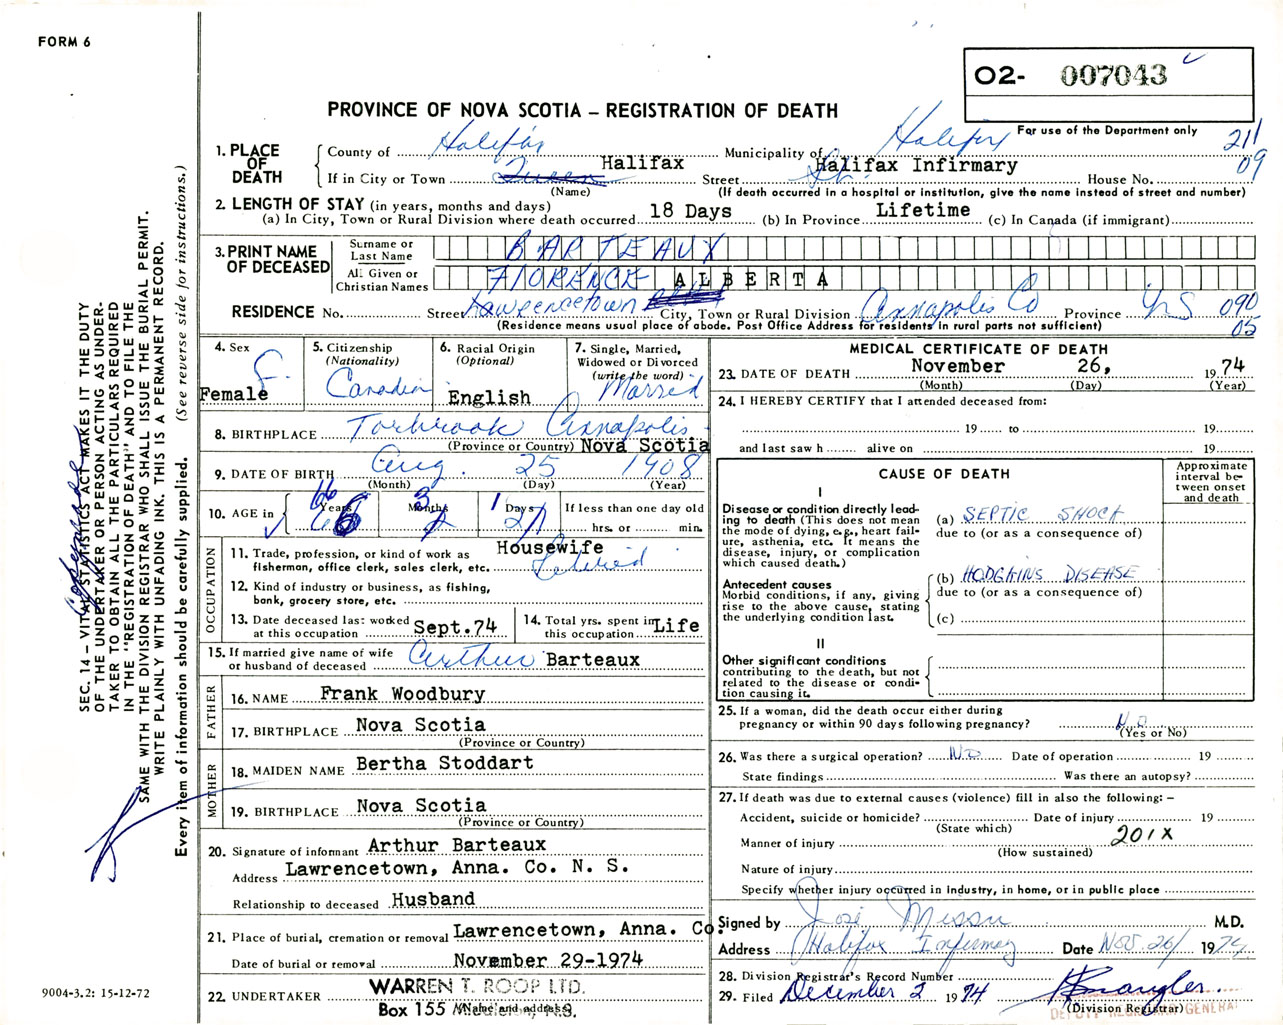 FORM 6
O2- 007043
PROVINCE OF NOVA SCOTIA – REGISTRATION OF DEATH
For use of the Department only
211
09
1. PLACE OF DEATH
County of Halifax Municipality of Halifax
If in City or Town Halifax Street Halifax Infirmary House No.
(Name) (If death occurred in a hospital or institution, give the name instead of street and number)
2. LENGTH OF STAY (in years, months and days)
(a) In City, Town or Rural Division where death occurred 18 Days (b) In Province Lifetime (c) In Canada (if immigrant)
3. PRINT NAME OF DECEASED
Surname or Last Name BARTEAUX
All Given or Christian Names FLORENCE ALBERTA
RESIDENCE No. Street Lawrencetown City, Town or Rural Division Annapolis Co Province NS 090
05
(Residence means usual place of abode. Post Office Address for residents in rural parts not sufficient)
4. Sex
F.
Female
5. Citizenship
(Nationality)
Canadian
6. Racial Origin
(Optional)
English
7. Single, Married,
Widowed or Divorced
(write the word)
Married
8. BIRTHPLACE Torbrook Annapolis
(Province or Country) Nova Scotia
9. DATE OF BIRTH Aug. 25 1908
(Month) (Day) (Year)
10. AGE in
66 Years 3 Months 1 Days
If less than one day old
hrs. or min.
OCCUPATION
11. Trade, profession, or kind of work as Housewife
fisherman, office clerk, sales clerk, etc. Retired
12. Kind of industry or business, as fishing,
bank, grocery store, etc.
13. Date deceased last worked
at this occupation Sept.74
14. Total yrs. spent in
this occupation Life
15. If married give name of wife
or husband of deceased Arthur Barteaux
FATHER
16. NAME Frank Woodbury
17. BIRTHPLACE Nova Scotia
(Province or Country)
MOTHER
18. MAIDEN NAME Bertha Stoddart
19. BIRTHPLACE Nova Scotia
(Province or Country)
20. Signature of informant Arthur Barteaux
Address Lawrencetown, Anna. Co. N. S.
Relationship to deceased Husband
21. Place of burial, cremation or removal Lawrencetown, Anna. Co.
Date of burial or removal November 29-1974
22. UNDERTAKER WARREN T. ROOP LTD.
Box 155 N.S.
(Name and address)
MEDICAL CERTIFICATE OF DEATH
23. DATE OF DEATH November 26, 1974
(Month) (Day) (Year)
24. I HEREBY CERTIFY that I attended deceased from:
19 to 19
and last saw h alive on 19
CAUSE OF DEATH
Approximate interval between onset and death
I
Disease or condition directly lead-
ing to death (This does not mean
the mode of dying, e.g., heart fail-
ure, asthenia, etc. It means the
disease, injury, or complication
which caused death.)
(a) SEPTIC SHOCK
due to (or as a consequence of)
Antecedent causes
Morbid conditions, if any, giving
rise to the above cause, stating
the underlying condition last.
(b) HODGKINS DISEASE
due to (or as a consequence of)
(c)
II
Other significant conditions
contributing to the death, but not
related to the disease or condi-
tion causing it.
25. If a woman, did the death occur either during
pregnancy or within 90 days following pregnancy? No
(Yes or No)
26. Was there a surgical operation? No Date of operation 19
State findings Was there an autopsy?
27. If death was due to external causes (violence) fill in also the following: –
Accident, suicide or homicide? Date of injury 19
(State which) 201X
Manner of injury
(How sustained)
Nature of injury
Specify whether injury occurred in industry, in home, or in public place
Signed by M.D.
Address Halifax Infirmary Date Nov. 26/ 1974
28. Division Registrar's Record Number
29. Filed December 2 1974
(Division Registrar)
DEPUTY REGISTRAR GENERAL
SEC. 14 – VITAL STATISTICS ACT MAKES IT THE DUTY
OF THE UNDERTAKER OR PERSON ACTING AS UNDER-
TAKER TO OBTAIN ALL THE PARTICULARS REQUIRED
IN THE "REGISTRATION OF DEATH" AND TO FILE THE
SAME WITH THE DIVISION REGISTRAR WHO SHALL ISSUE THE BURIAL PERMIT.
WRITE PLAINLY WITH UNFADING INK. THIS IS A PERMANENT RECORD.
Every item of information should be carefully supplied. (See reverse side for instructions.)
9004-3.2: 15-12-72